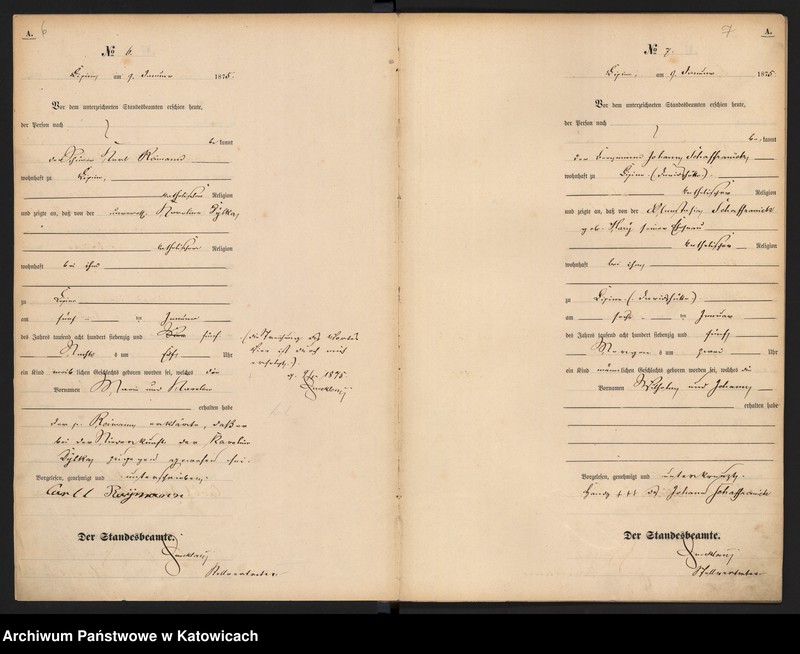 A. 6
№ 6.
Lipine, am 9. Januar 1875.
Vor dem unterzeichneten Standesbeamten erschien heute,
der Person nach
be kannt
der Karl Reimann
wohnhaft zu Lipine,
katholischer Religion
und zeigte an, daß von der unverehl. Karoline Dylka,
katholischer Religion
wohnhaft bei ihm
zu Lipine
am fünf ten Januar
des Jahres tausend acht hundert siebenzig und fünf
Nachts um Uhr
ein Kind weib lichen Geschlechts geboren worden sei, welches die
Vornamen Marie und Karoline
erhalten habe
der p. Reimann erklärte, daß er
bei der Niederkunft der Karoline
Dylka zugegen gewesen sei.
Vorgelesen, genehmigt und unterschrieben.
Carl Reymann
Der Standesbeamte.
Stellvertreter
(die Streichung des Wortes
ist durch mich
erfolgt.)
9. 1875
7 A.
№ 7.
Lipine, am 9. Januar 1875.
Vor dem unterzeichneten Standesbeamten erschien heute,
der Person nach
be kannt
der Bergmann Johann Schaffranietz
wohnhaft zu Lipine (Davidhütte).
katholischer Religion
und zeigte an, daß von der Schaffranietz
geb. seiner Ehefrau
katholischer Religion
wohnhaft bei ihm
zu Lipine (Davidhütte)
am sechs ten Januar
des Jahres tausend acht hundert siebenzig und fünf
Morgens um zwei Uhr
ein Kind männ lichen Geschlechts geboren worden sei, welches die
Vornamen Wilhelm und Johann
erhalten habe
Vorgelesen, genehmigt und unterkreuzt.
Handz. +++ des Johann Schaffranietz
Der Standesbeamte.
Stellvertreter
Archiwum Państwowe w Katowicach